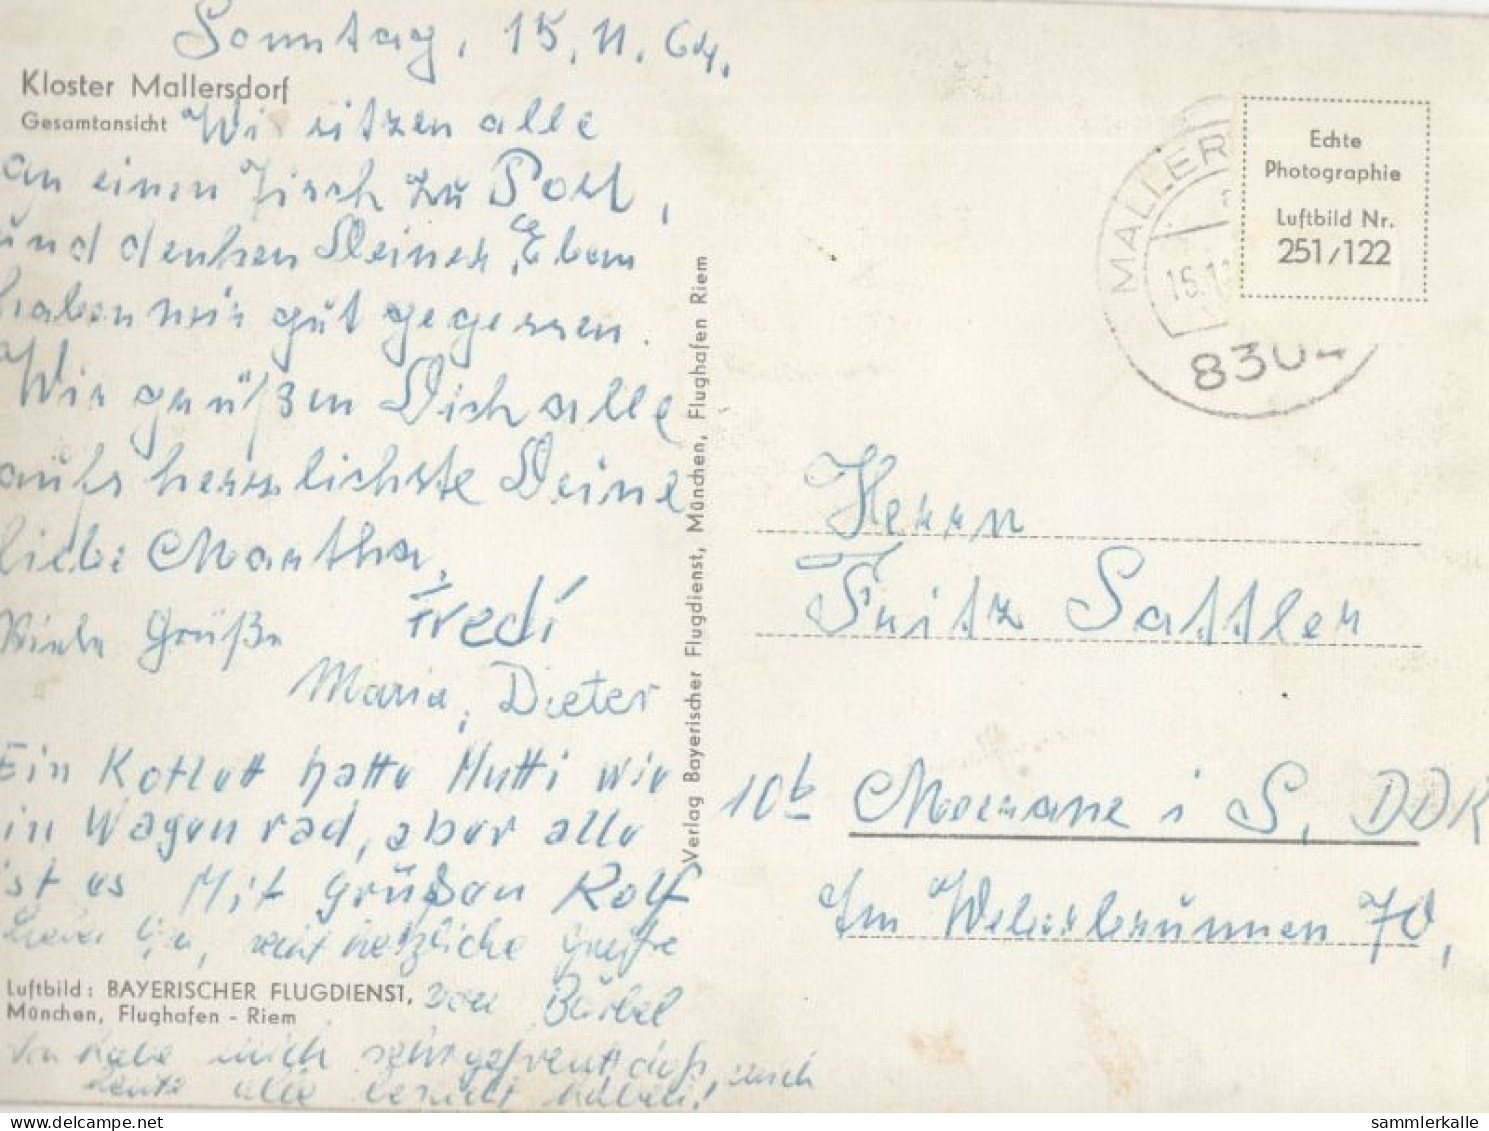 Sonntag, 15.11.64.
Kloster Mallersdorf
Gesamtansicht
Wir sitzen alle
an einen Tisch zu Post,
und denken Deiner. Eben
haben wir gut gegessen.
Wir grüßen Dich alle
aufs herrlichste Deine
liebe Martha.
Fredi
Viele Grüße
Maria, Dieter
Ein Kotlett hatte Mutti wie
ein Wagenrad, aber alle
ist es Mit Grüßen Rolf
herzliche Grüße
von Bärbel
Luftbild: BAYERISCHER FLUGDIENST,
München, Flughafen - Riem
habe mich sehr gefreut daß mich
heute alle besucht haben!
Verlag Bayerischer Flugdienst, München, Flughafen Riem
MALLER
15.1
8304
Echte
Photographie
Luftbild Nr.
251/122
Herrn
Fritz Sattler
10b Meerane i S, DDR
Am Weberbrunnen 70,
www.delcampe.net
sammlerkalle